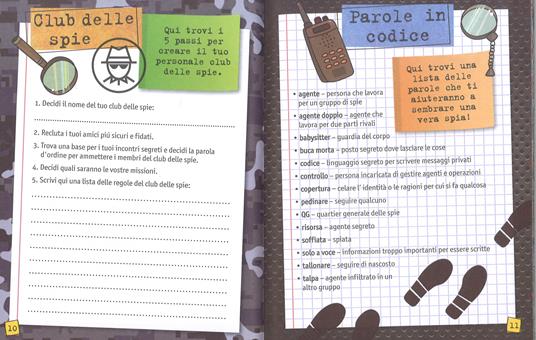 Club delle
spie
Qui trovi i
5 passi per
creare il tuo
personale club
delle spie.
1. Decidi il nome del tuo club delle spie:
2. Recluta i tuoi amici più sicuri e fidati.
3. Trova una base per i tuoi incontri segreti e decidi la parola
d'ordine per ammettere i membri del club delle spie.
4. Decidi quali saranno le vostre missioni.
5. Scrivi qui una lista delle regole del club delle spie:
10
Parole in
codice
Qui trovi una
lista delle
parole che ti
aiuteranno a
sembrare una
vera spia!
• agente – persona che lavora
per un gruppo di spie
• agente doppio – agente che
lavora per due parti rivali
• babysitter – guardia del corpo
• buca morta – posto segreto dove lasciare le cose
• codice – linguaggio segreto per scrivere messaggi privati
• controllo – persona incaricata di gestire agenti e operazioni
• copertura – celare l' identità o le ragioni per cui si fa qualcosa
• pedinare – seguire qualcuno
• QG – quartier generale delle spie
• risorsa – agente segreto
• soffiata – spiata
• solo a voce – informazioni troppo importanti per essere scritte
• tallonare – seguire di nascosto
• talpa – agente infiltrato in un
altro gruppo
11